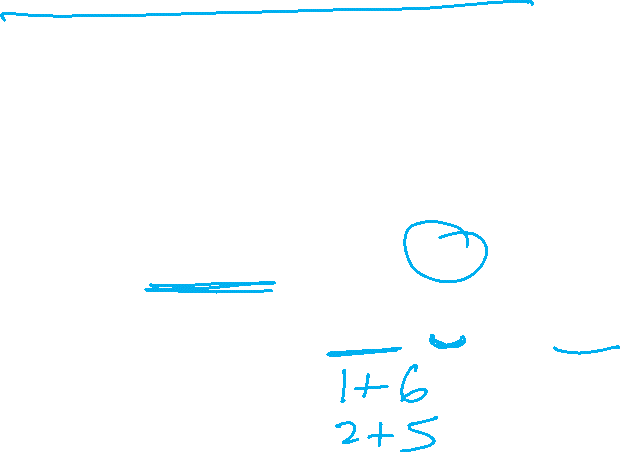 1+6
2+5